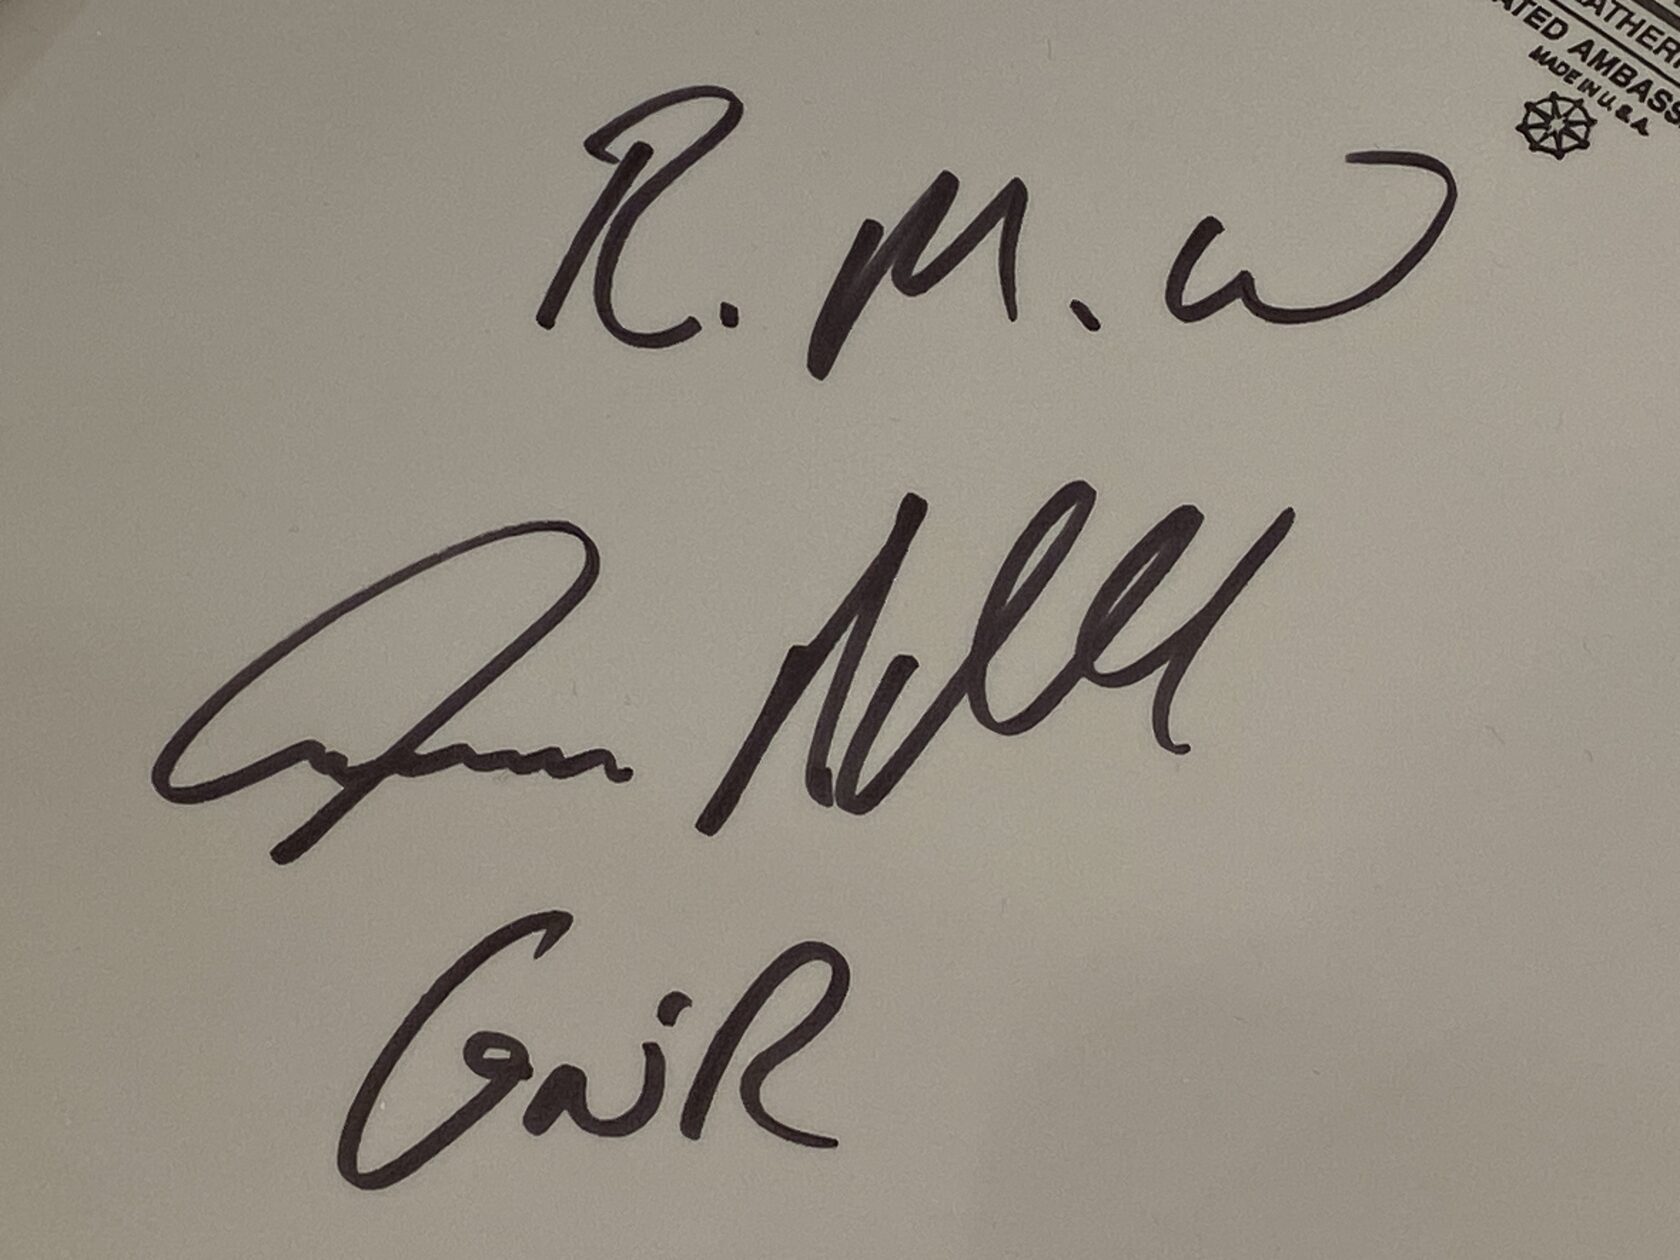 ATHER
ATED AMBASS
MADE IN U.S.A.
R. M. W
GN'R